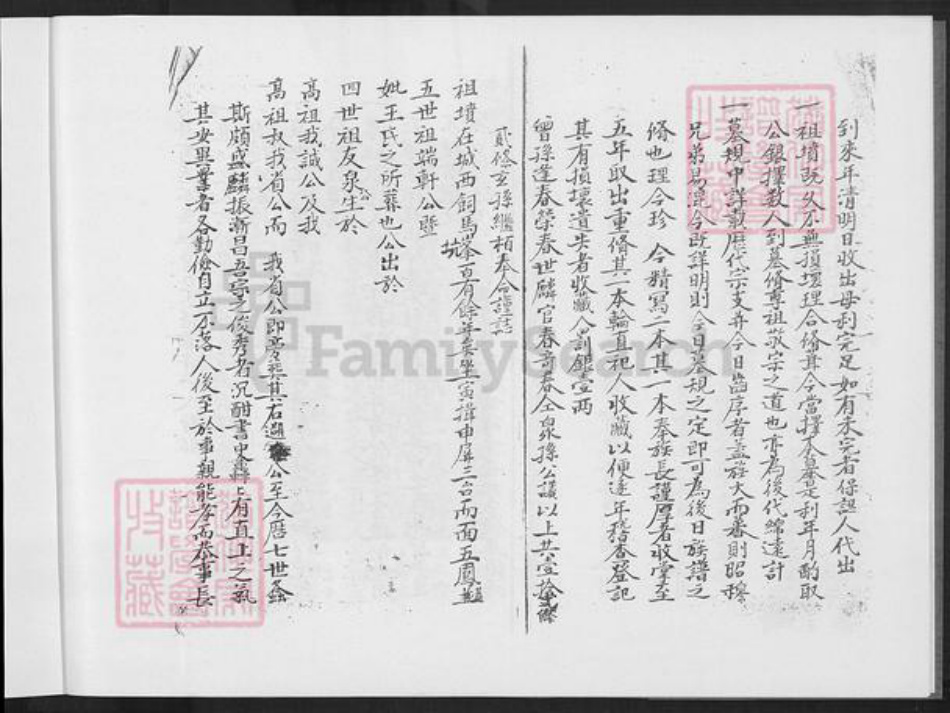 到來年清明日收出母利完足如有未完者保認人代出
一祖墳既久不無損壞理合脩葺今當擇本墓是利年月酌取
公銀擇數人到墓脩尊祖敬宗之道也亦為後代綿遠計
一墓規中詳載歷代宗支并今日齒序者蓋族大而蕃則昭穆
兄弟易混今既詳明則今日墓規之定即可為後日族譜之
脩也理合珍 今精寫二本其一本奉族長謹厚者收掌至
五年取出重脩其一本輪直祀人收藏以便逐年稽查登記
其有損壞遺失者收藏人罰銀壹兩
曾孫逢春榮春世麟官春奇春仝眾孫公議以上共壹拾條
貳修玄孫繼栢奉命謹誌
祖墳在城西飼馬峯坑百有餘年矣坐寅揖申屏三台而面五鳳
五世祖端軒公暨
妣王氏之所葬也公出於
四世祖友泉公生於
高祖我誠公及我
高祖叔我省公而 我省公即 葬其右 公至今曆七世螽
斯頗盛麟振漸昌吾宗之俊秀者沉酣書史 有直上之氣
其安畢業者各勤儉自立不落人後至於事親能孝而恭事長
FamilySearch